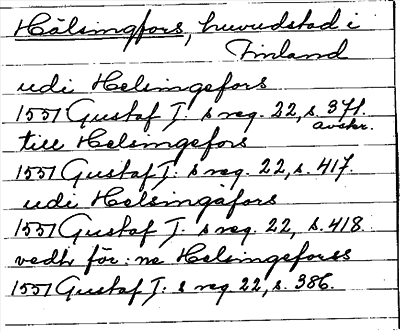 Hälsingfors, huvudstad i
Finland
udi Helsingefors
1551 Gustaf I: s reg. 22, s. 371.
avskr.
till Helsingefors
1551 Gustaf I: s reg. 22, s. 417.
udi Helsingåfors
1551 Gustaf I: s reg. 22, s. 418.
vedh för: ne Helsingeforss
1551 Gustaf I: s reg 22, s. 386.